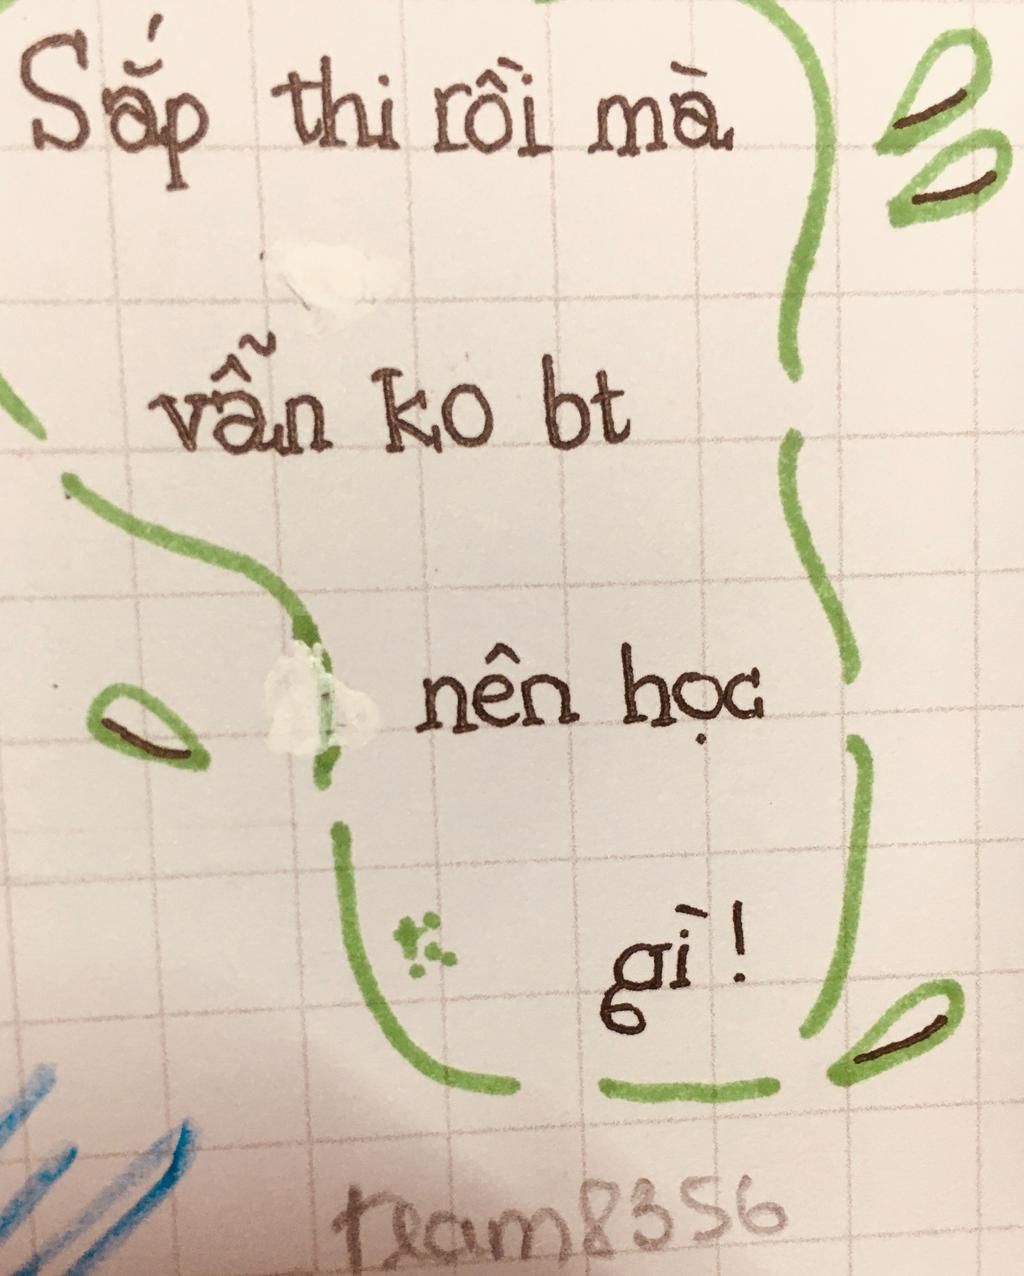 Sắp thi rồi mà
vẫn ko bt
nên học
gì!
team8356